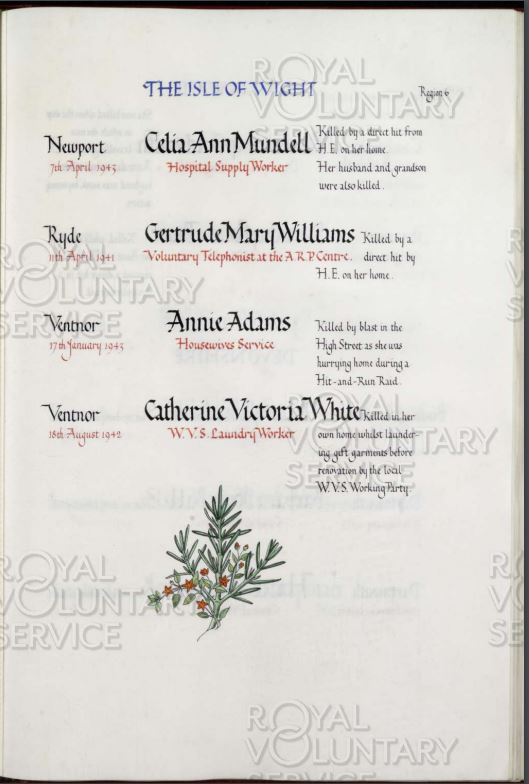 THE ISLE OF WIGHT
Region 6
Newport
7th April 1943
Celia Ann Mundell
Hospital Supply Worker
Killed by a direct hit from
H.E. on her home.
Her husband and grandson
were also killed.
Ryde
11th April 1941
Gertrude Mary Williams
Voluntary Telephonist at the A.R.P. Centre.
Killed by a
direct hit by
H.E. on her home.
Ventnor
17th January 1943
Annie Adams
Housewives Service
Killed by blast in the
High Street as she was
hurrying home during a
Hit-and-Run Raid.
Ventnor
18th August 1942
Catherine Victoria White
W.V.S. Laundry Worker
Killed in her
own home whilst launder-
ing gift garments before
renovation by the local
W.V.S. Working Party.
ROYAL
VOLUNTARY
SERVICE
ROYAL
VOLUNTARY
SERVICE
ROYAL
VOLUNTARY
SERVICE
ROYAL
VOLUNTARY
SERVICE
ROYAL
VOLUNTARY
SERVICE